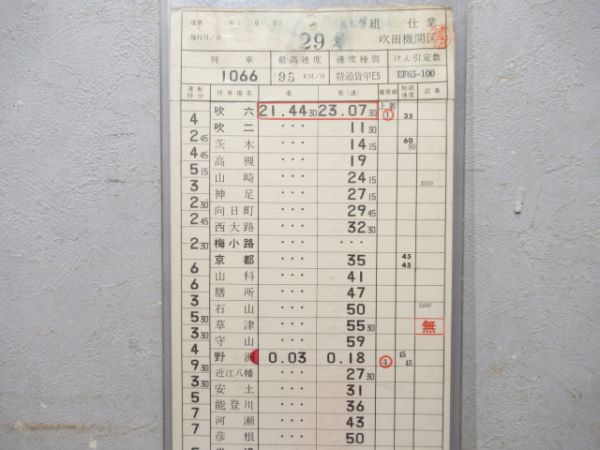 組 仕業
29
吹田機関区
列車 最高速度 速度種別 けん引定数
1066 95 KM/H 特通貨甲E5 EF65-100
運転時分 停車場名 着 発(通) 着発線 制限速度 記事
4 吹六 21.44 30 23.07 30 上着 ① 35
2 45 吹二 ・・・ 11 30
4 45 茨木 ・・・ 14 15 60
5 15 高槻 ・・・ 19
3 山崎 ・・・ 24 15
2 30 神足 ・・・ 27 15
2 45 向日町 ・・・ 29 45
西大路 ・・・ 32 30
2 30 梅小路 ・・・ ・・・
京都 ・・・ 35 45 45
6 山科 ・・・ 41
6 膳所 ・・・ 47
3 石山 ・・・ 50
5 30 草津 ・・・ 55 30 無
3 30 守山 ・・・ 59
4 野洲 0.03 0.18 ④ 45 45
9 30 近江八幡 ・・・ 27 30
3 30 安土 ・・・ 31
5 能登川 ・・・ 36
7 河瀬 ・・・ 43
7 彦根 ・・・ 50